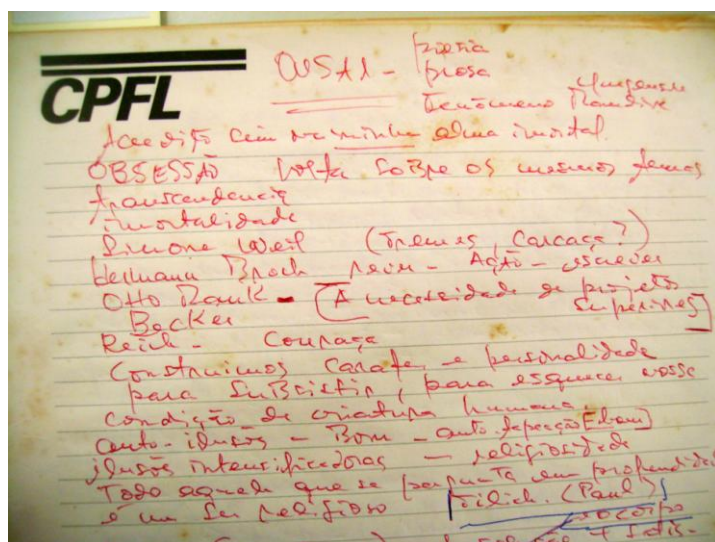 CPFL
OUSAR - poesia
prosa
Fenômeno
Acredito em na minha alma imortal.
OBSESSÃO volta sobre os mesmos temas
transcendencia
imortalidade
Simone Weil (Tremes, carcaça?)
Hermann Broch - Ação - escrever
Otto Rank - (A necessidade de projetos
Becker superiores)
Reich - Couraça
Construimos carater e personalidade
para subsistir, para esquecer nossa
condição de criatura humana.
auto-ilusões - Bom - auto
ilusões intensificadoras - religiosidade
Todo aquele que se pergunta em profundidade
é um ser religioso Tilich. (Paul)